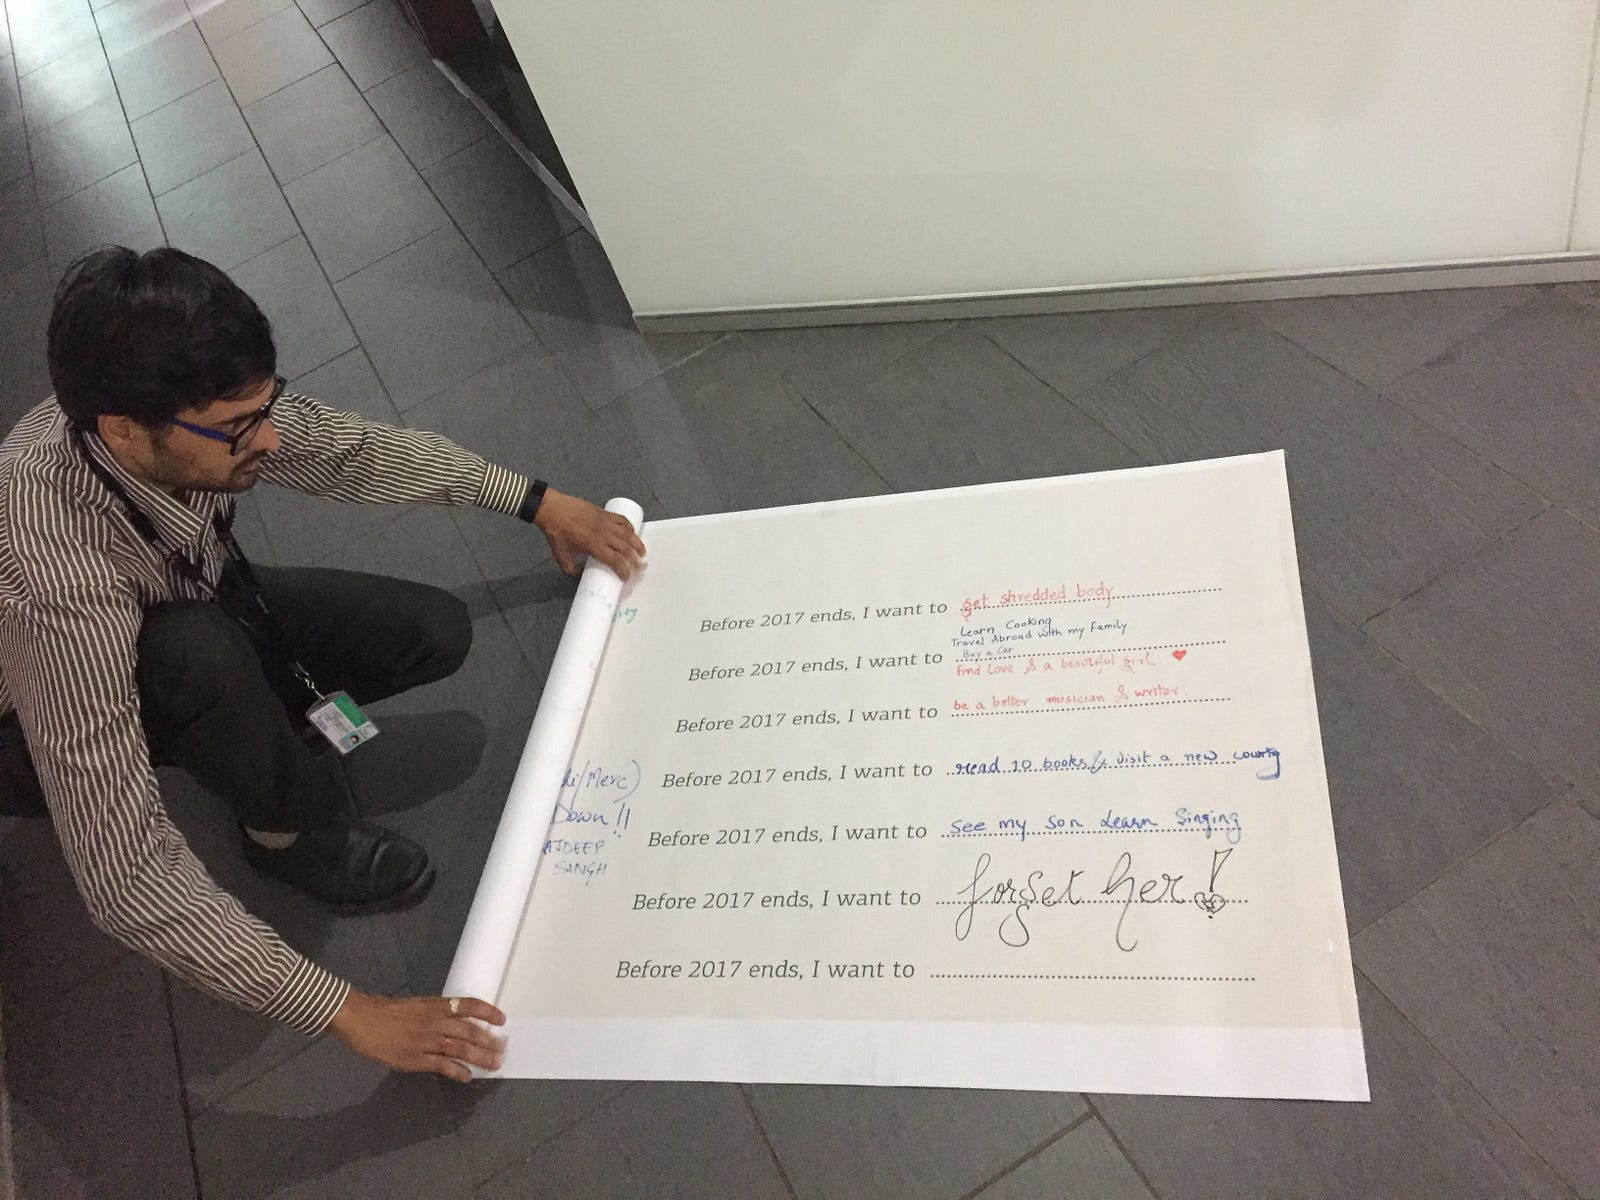 Before 2017 ends, I want to get shredded body
Learn Cooking
Travel Abroad with my family
Buy a Car
Before 2017 ends, I want to
find Love & a beautiful girl
Before 2017 ends, I want to be a better musician & writer.
Before 2017 ends, I want to read 10 books & visit a new country
Before 2017 ends, I want to see my son learn singing
Before 2017 ends, I want to forget her!
Before 2017 ends, I want to
/Merc)
Down!!
AJDEEP
SINGH